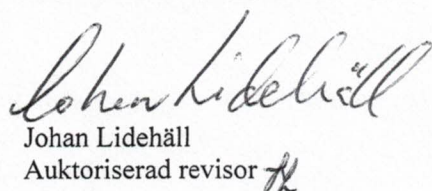 Johan Lidehäll
Johan Lidehäll
Auktoriserad revisor